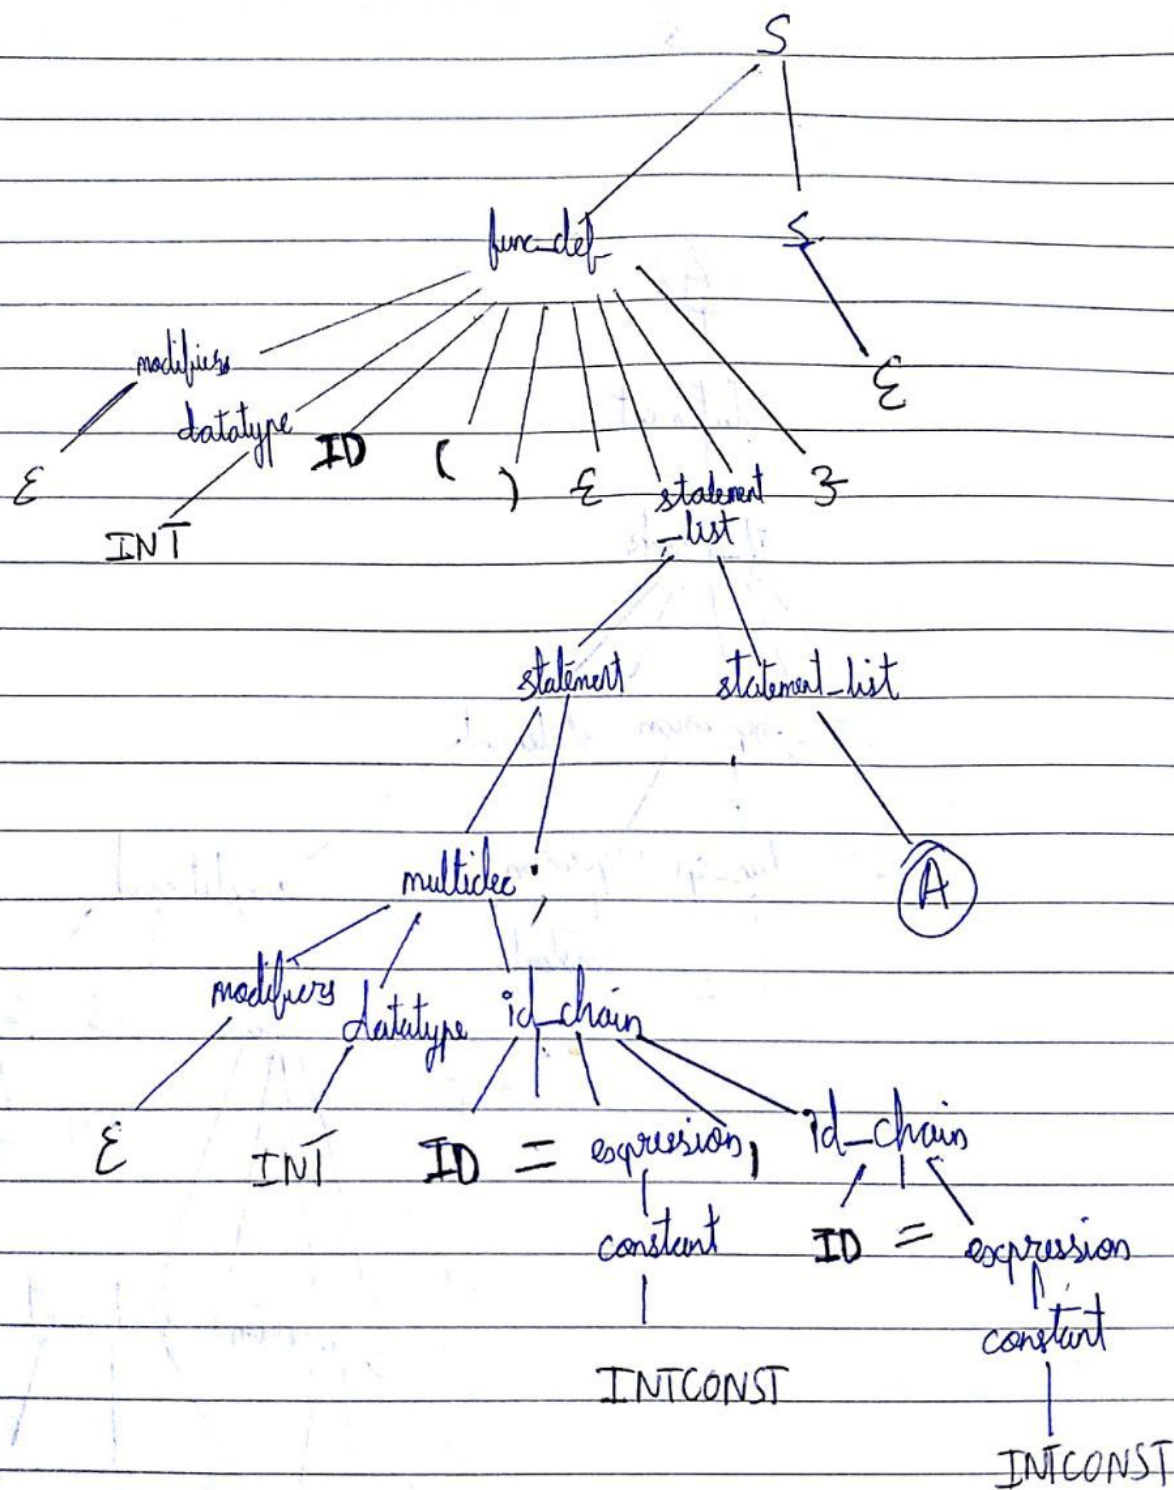 S
func_def
S
modifiers
ε
datatype
ID
(
ε
)
{
statement
}
INT
_list
statement
statement_list
multidec
;
A
modifiers
datatype
id_chain
ε
INT
ID
=
expression
,
id_chain
constant
ID
=
expression
constant
INTCONST
INTCONST